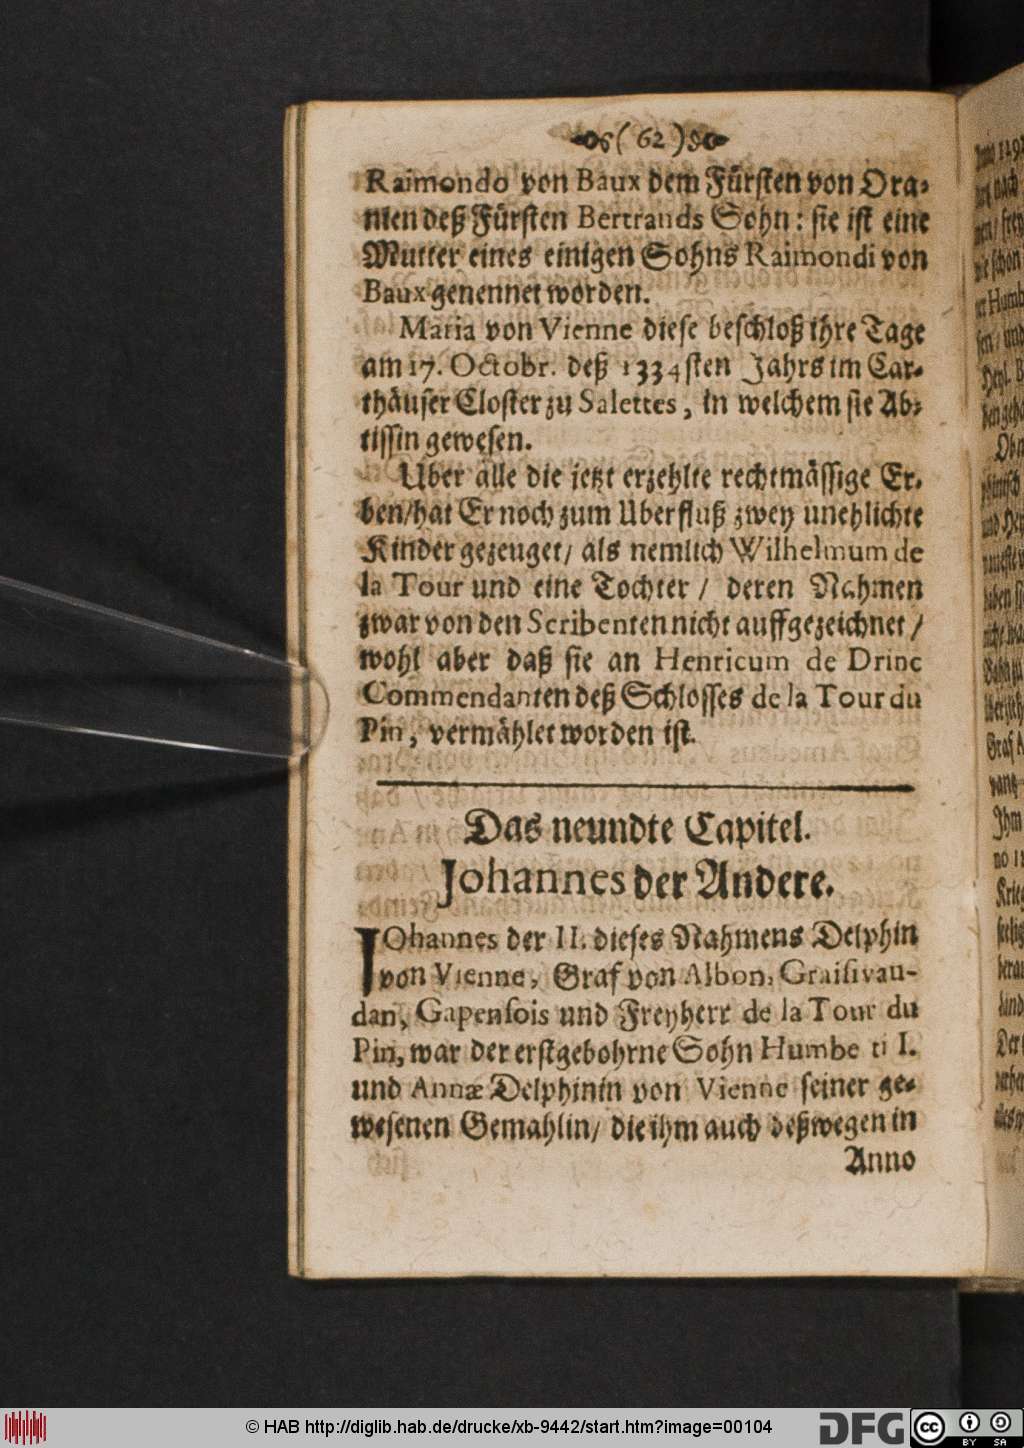 (62)
Raimondo von Baux dem Fürsten von Ora-
nien deß Fürsten Bertrands Sohn: sie ist eine
Mutter eines einigen Sohns Raimondi von
Baux genennet worden.
Maria von Vienne diese beschloß ihre Tage
am 17. Octobr. deß 1334sten Jahrs im Car-
thäuser Closter zu Salettes, in welchem sie Ab-
tissin gewesen.
Uber alle die jetzt erzehlte rechtmässige Er-
ben/hat Er noch zum Uberfluß zwey unehlichte
Kinder gezeuget/ als nemlich Wilhelmum de
la Tour und eine Tochter / deren Nahmen
zwar von den Scribenten nicht auffgezeichnet /
wohl aber daß sie an Henricum de Drinc
Commendanten deß Schlosses de la Tour du
Pin, vermählet worden ist.
Das neundte Capitel.
Johannes der Andere.
JOhannes der II. dieses Nahmens Delphin
von Vienne, Graf von Albon, Graisivau-
dan, Gapensois und Freyherr de la Tour du
Pin, war der erstgebohrne Sohn Humbe ti I.
und Annæ Delphinin von Vienne seiner ge-
wesenen Gemahlin/ die ihm auch deßwegen in
Anno
© HAB http://diglib.hab.de/drucke/xb-9442/start.htm?image=00104
DFG
cc
BY SA